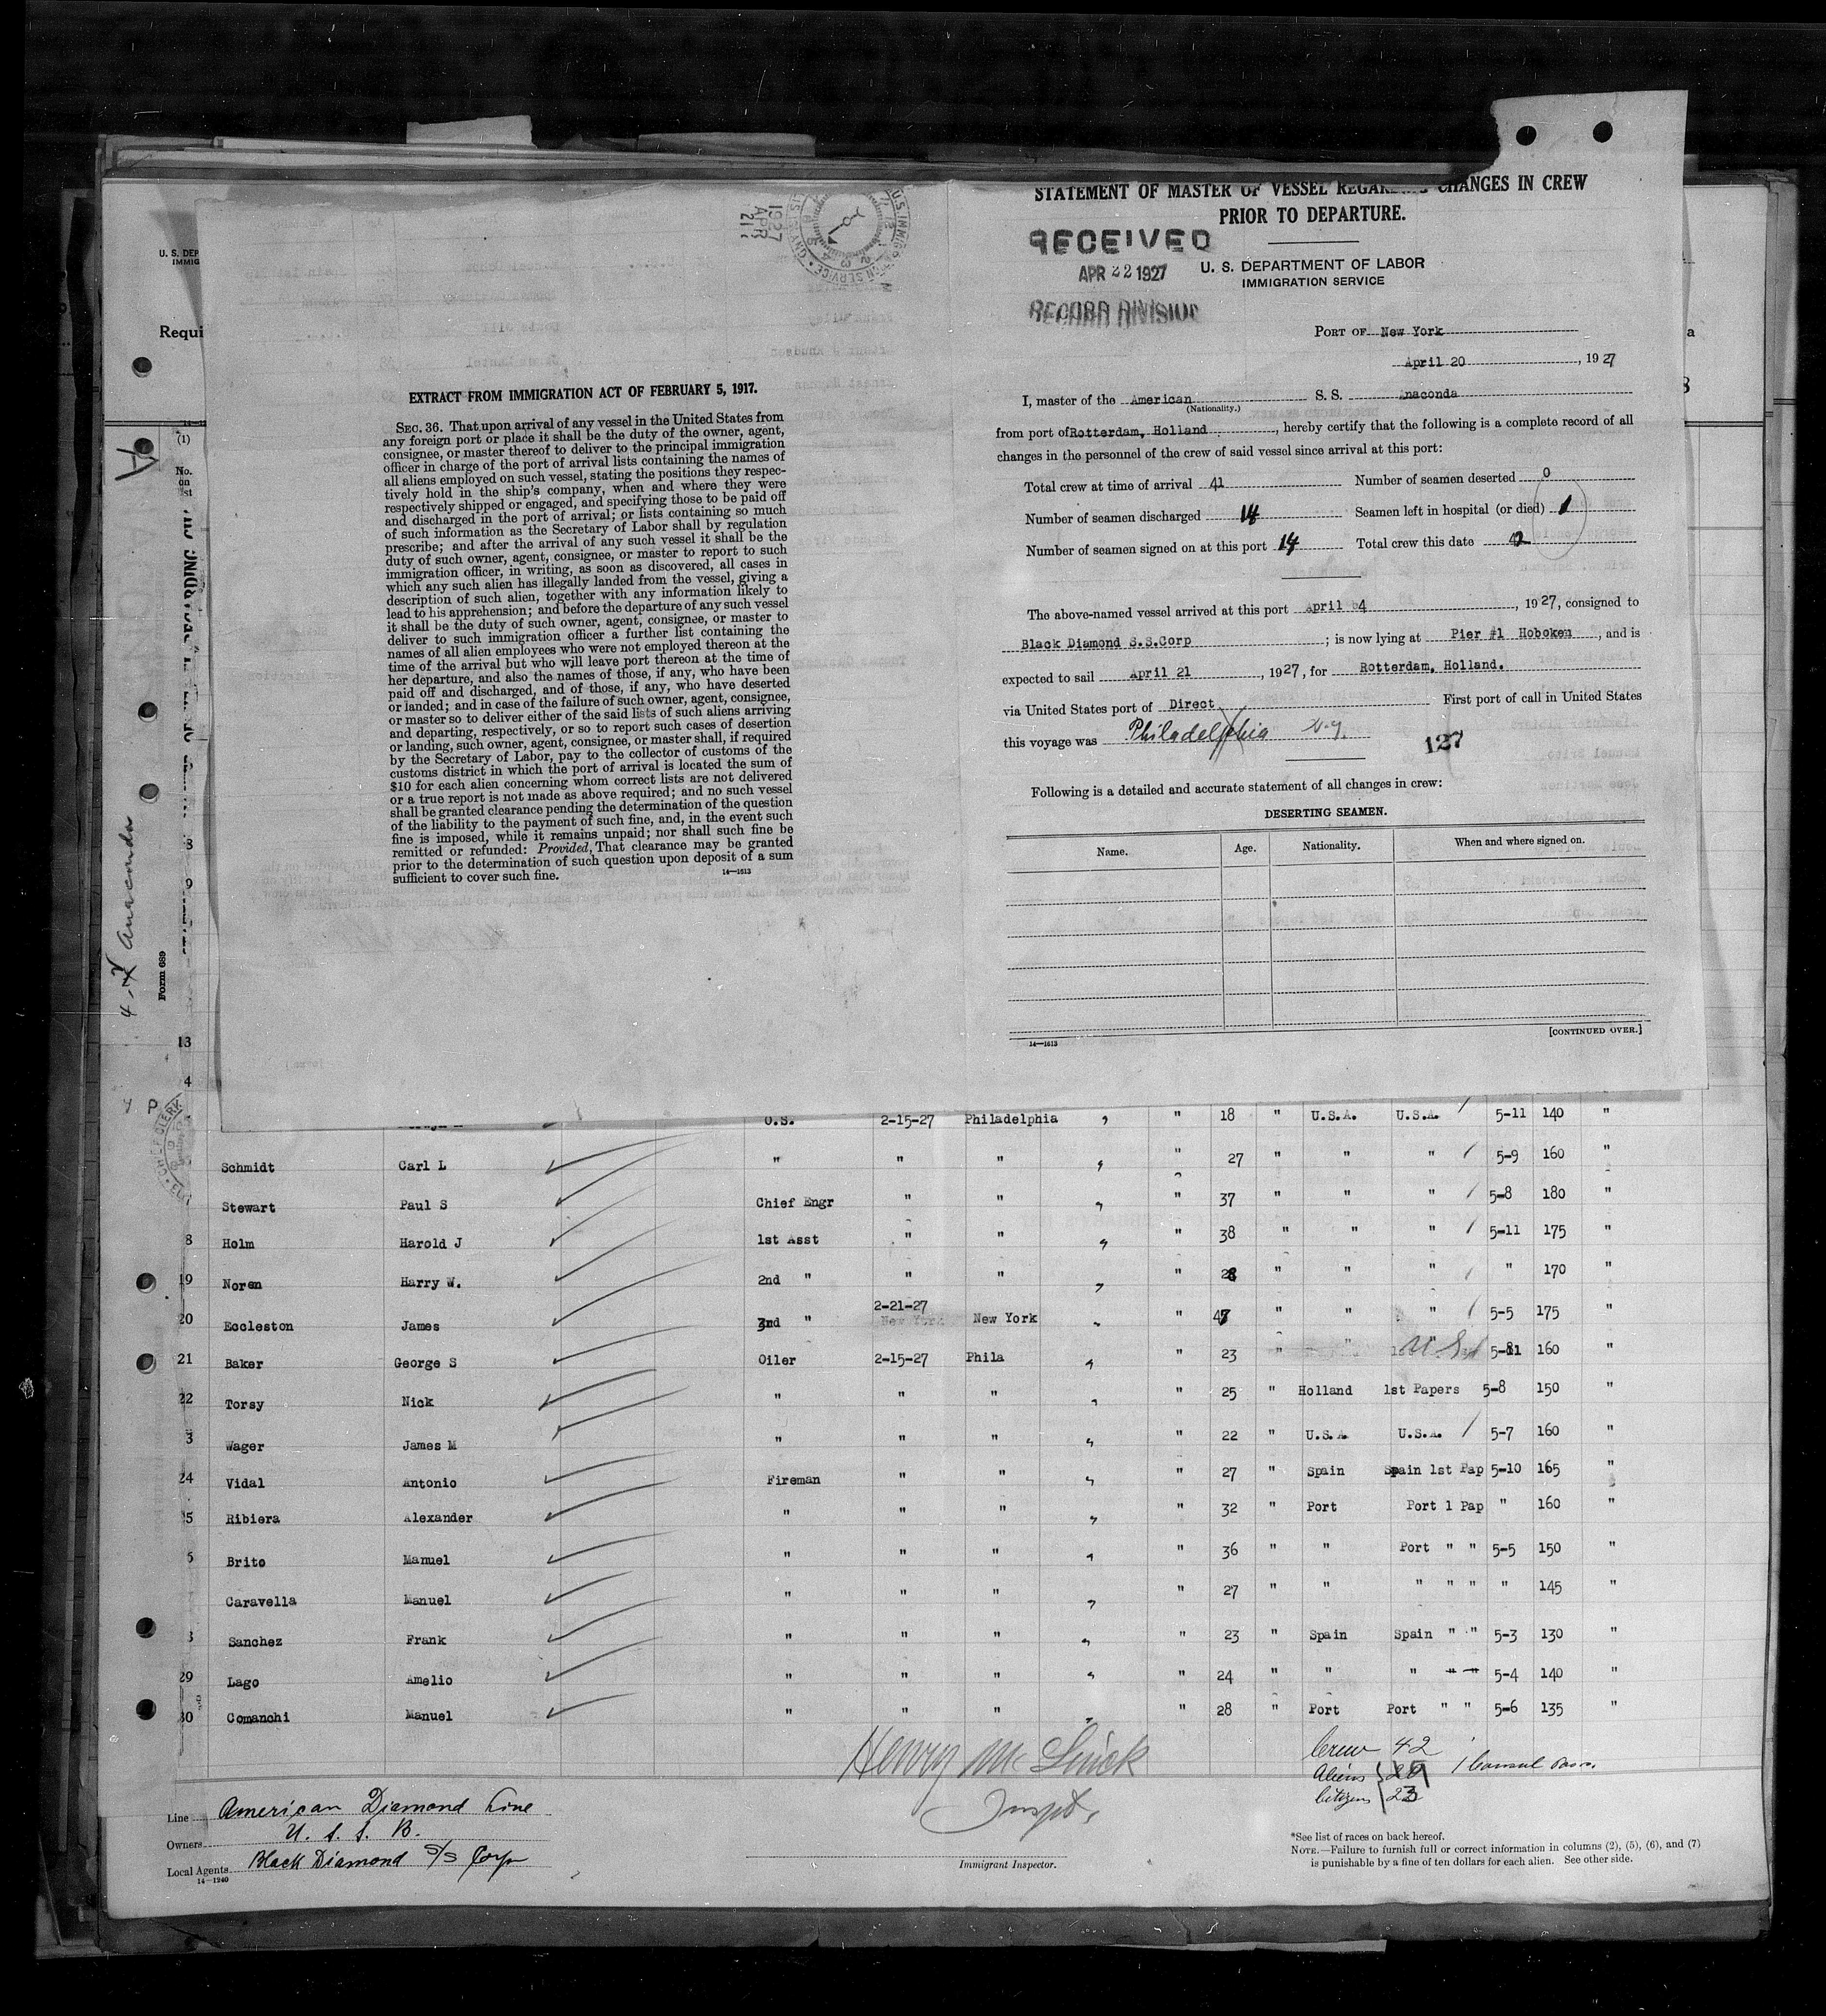 U. S. DEP
IMMIG
Requi
(1)
No.
on
Form 689
4- Anaconda
1927
APR
21
EXTRACT FROM IMMIGRATION ACT OF FEBRUARY 5, 1917.
SEC. 36. That upon arrival of any vessel in the United States from
any foreign port or place it shall be the duty of the owner, agent,
consignee, or master thereof to deliver to the principal immigration
officer in charge of the port of arrival lists containing the names of
all aliens employed on such vessel, stating the positions they respec-
tively hold in the ship's company, when and where they were
respectively shipped or engaged, and specifying those to be paid off
and discharged in the port of arrival; or lists containing so much
of such information as the Secretary of Labor shall by regulation
prescribe; and after the arrival of any such vessel it shall be the
duty of such owner, agent, consignee, or master to report to such
immigration officer, in writing, as soon as discovered, all cases in
which any such alien has illegally landed from the vessel, giving a
description of such alien, together with any information likely to
lead to his apprehension; and before the departure of any such vessel
it shall be the duty of such owner, agent, consignee, or master to
deliver to such immigration officer a further list containing the
names of all alien employees who were not employed thereon at the
time of the arrival but who will leave port thereon at the time of
her departure, and also the names of those, if any, who have been
paid off and discharged, and of those, if any, who have deserted
or landed; and in case of the failure of such owner, agent, consignee,
or master so to deliver either of the said lists of such aliens arriving
and departing, respectively, or so to report such cases of desertion
or landing, such owner, agent, consignee, or master shall, if required
by the Secretary of Labor, pay to the collector of customs of the
customs district in which the port of arrival is located the sum of
$10 for each alien concerning whom correct lists are not delivered
or a true report is not made as above required; and no such vessel
shall be granted clearance pending the determination of the question
of the liability to the payment of such fine, and, in the event such
fine is imposed, while it remains unpaid; nor shall such fine be
remitted or refunded: Provided, That clearance may be granted
prior to the determination of such question upon deposit of a sum
sufficient to cover such fine.
14—1613
STATEMENT OF MASTER OF VESSEL REGARDING CHANGES IN CREW
PRIOR TO DEPARTURE.
RECEIVED
APR 22 1927
RECORD DIVISION
U. S. DEPARTMENT OF LABOR
IMMIGRATION SERVICE
PORT OF New York
April 20, 1927
I, master of the American S. S. Anaconda
(Nationality.)
from port of Rotterdam, Holland, hereby certify that the following is a complete record of all
changes in the personnel of the crew of said vessel since arrival at this port:
Total crew at time of arrival 41 Number of seamen deserted 0
Number of seamen discharged 14 Seamen left in hospital (or died) 1
Number of seamen signed on at this port 14 Total crew this date 42
The above-named vessel arrived at this port April 4, 1927, consigned to
Black Diamond S.S.Corp; is now lying at Pier #1 Hoboken, and is
expected to sail April 21, 1927, for Rotterdam, Holland.
via United States port of Direct First port of call in United States
this voyage was Philadelphia N.Y.
127
Following is a detailed and accurate statement of all changes in crew:
DESERTING SEAMEN.
Name. Age. Nationality. When and where signed on.
[CONTINUED OVER.]
14—1613
O.S. 2-15-27 Philadelphia " 18 " U.S.A. U.S.A. / 5-11 140 "
Schmidt Carl L " " " " 27 " " " / 5-9 160 "
Stewart Paul S Chief Engr " " " 37 " " " / 5-8 180 "
8 Holm Harold J 1st Asst " " " 38 " " " / 5-11 175 "
19 Noren Harry W. 2nd " " " " 28 " " " / " 170 "
20 Eccleston James 3rd " 2-21-27 New York " 47 " " " / 5-5 175 "
21 Baker George S Oiler 2-15-27 Phila " 23 " " U.S.A 5-11 160 "
22 Torsy Nick " " " " 25 " Holland 1st Papers 5-8 150 "
3 Wager James M " " " " 22 " U.S.A. U.S.A. / 5-7 160 "
24 Vidal Antonio Fireman " " " 27 " Spain Spain 1st Pap 5-10 165 "
25 Ribiera Alexander " " " " 32 " Port Port 1 Pap " 160 "
Brito Manuel " " " " 36 " " Port " " 5-5 150 "
Caravella Manuel " " " " 27 " " " " " " 145 "
Sanchez Frank " " " " 23 " Spain Spain " " 5-3 130 "
29 Lago Amelio " " " " 24 " " " " " 5-4 140 "
30 Comanchi Manuel " " " " 28 " Port Port " " 5-6 135 "
Crew 42
Aliens 19
Citizens 23
1 Consul
Henry Mc
Inspt.
Immigrant Inspector.
Line American Diamond Line
Owners U. S. S. B.
Local Agents Black Diamond S/S Corp
14—1240
*See list of races on back hereof.
NOTE.—Failure to furnish full or correct information in columns (2), (5), (6), and (7)
is punishable by a fine of ten dollars for each alien. See other side.